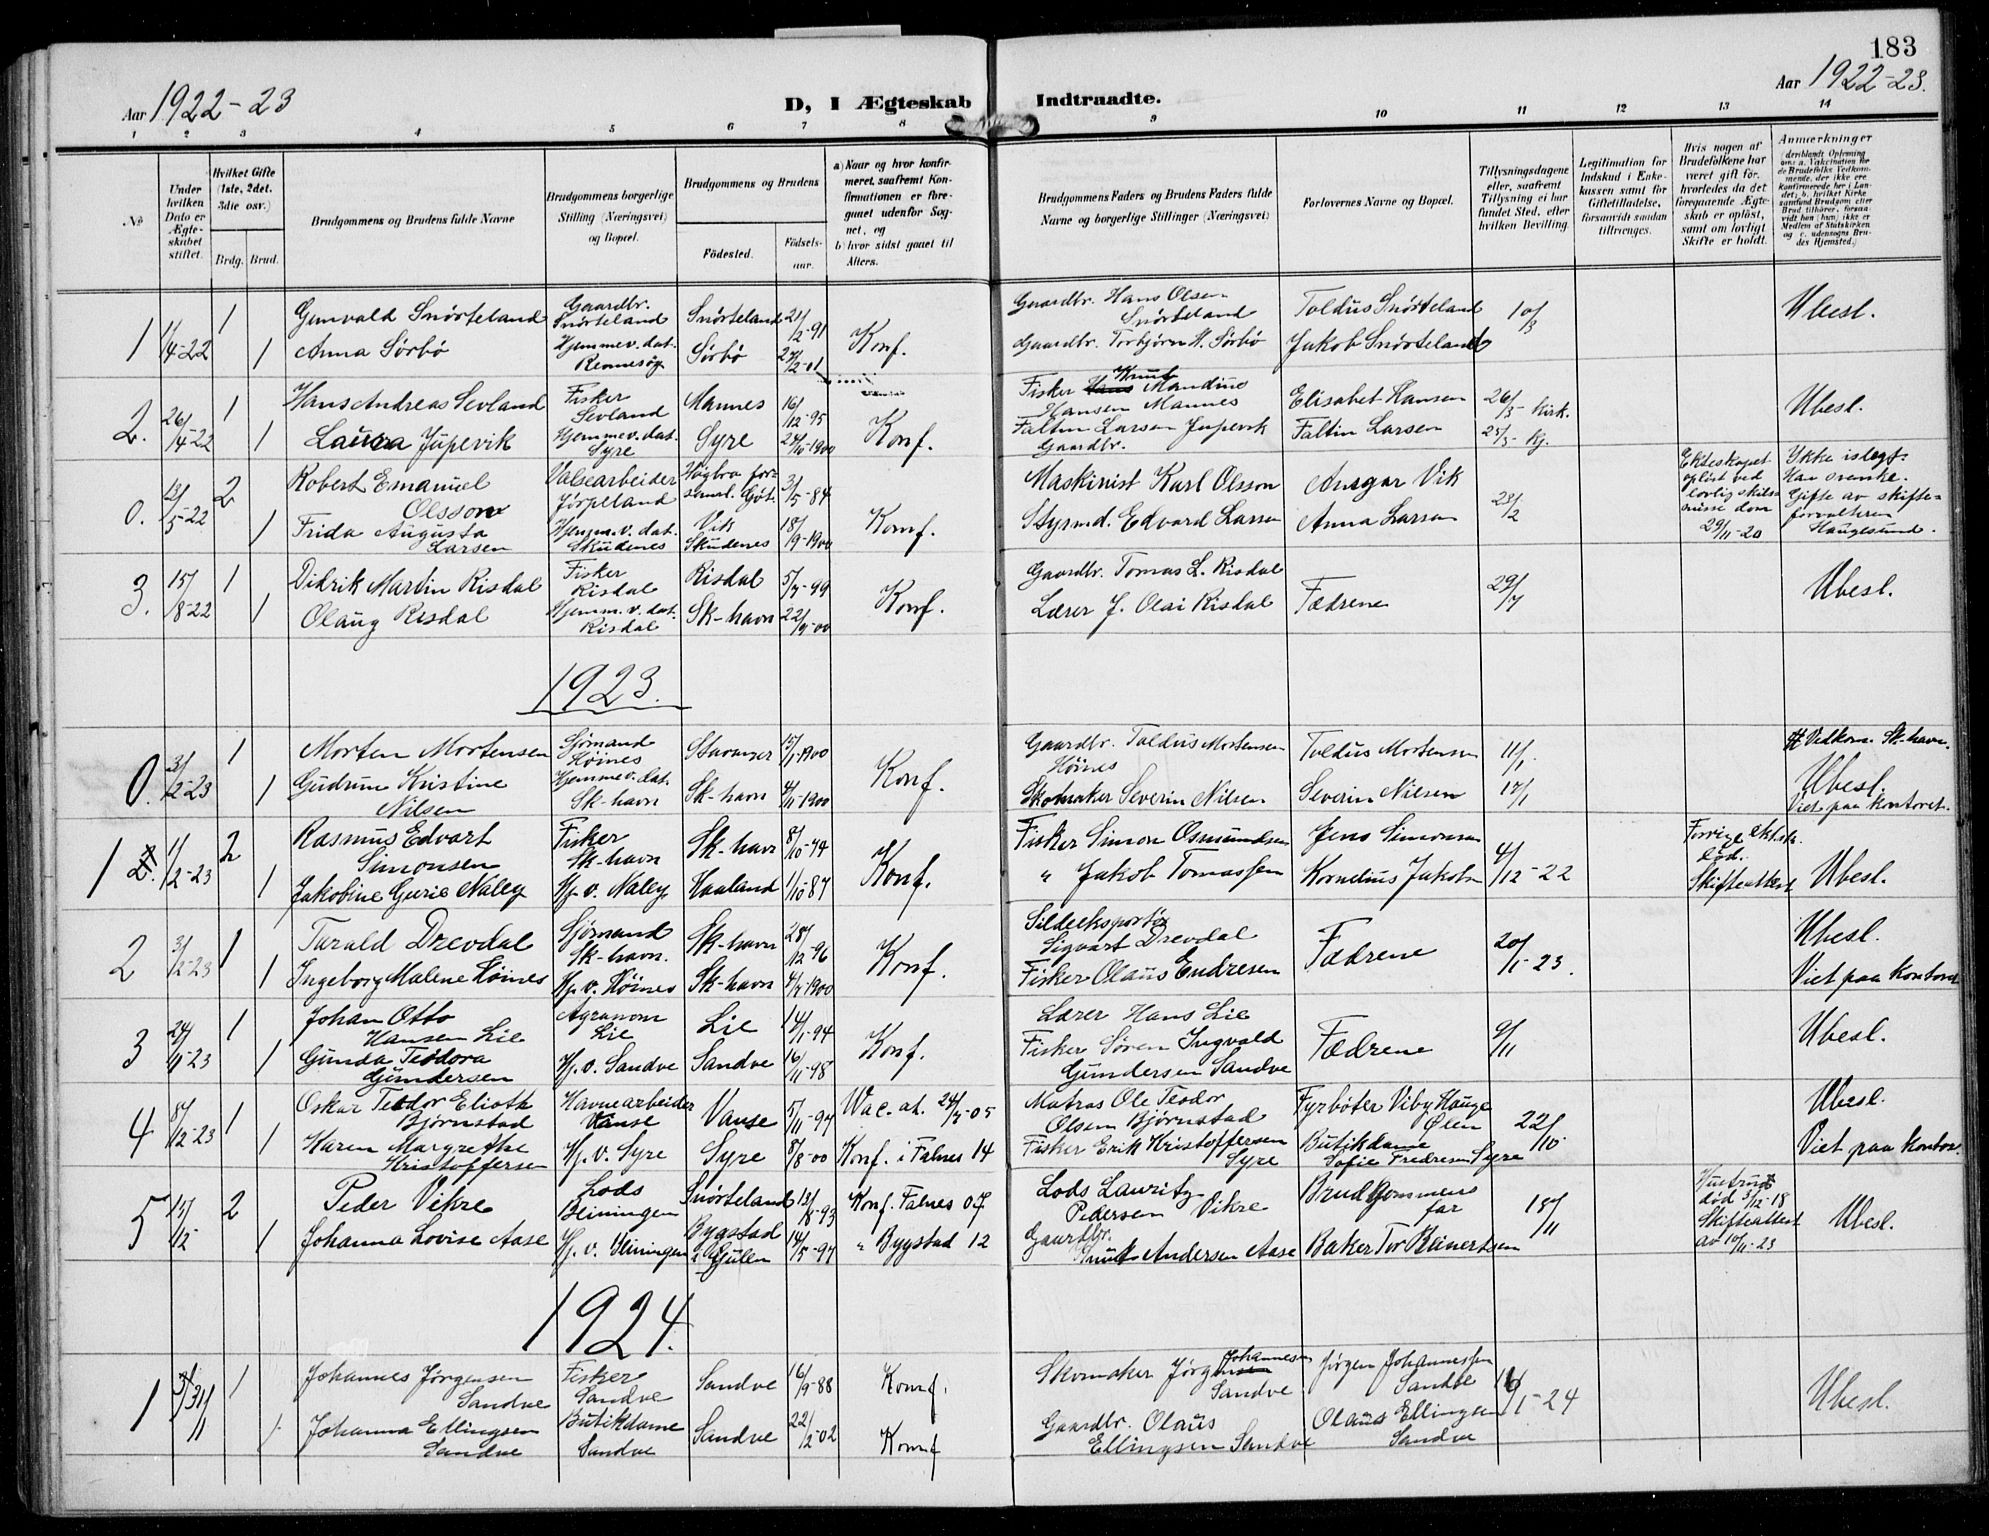 183
Aar 1922-23
D, I Ægteskab Indtraadte.
Aar 1922-23.
1 2 3 4 5 6 7 8 9 10 11 12 13 14
No
Under hvilken Dato er Ægteskabet stiftet.
Hvilket Gifte (1ste, 2det, 3die osv.)
Brdg. Brud.
Brudgommens og Brudens fulde Navne
Brudgommens borgerlige Stilling (Næringsvei) og Bopæl.
Brudgommens og Brudens
Fødested. Fødselsaar.
a) Naar og hvor konfirmeret, saafremt Konfirmationen er foregaaet udenfor Sognet, og
b) hvor sidst gaaet til Alters.
Brudgommens Faders og Brudens Faders fulde Navne og borgerlige Stillinger (Næringsvei)
Forlovernes Navne og Bopæl.
Tillysningsdagene eller, saafremt Tillysning ei har fundet Sted, efter hvilken Bevilling.
Legitimation for Indskud i Enkekassen samt for Giftetilladelse, forsaavidt saadan tiltrænges.
Hvis nogen af Brudefolkene har været gift før, hvorledes da det foregaaende Ægteskab er opløst, samt om lovligt Skifte er holdt.
Anmærkninger
1 1/4-22 1 Gunvald Snørteland Gaardbr. Snørteland Snørteland 21/2-91 Konf. Gaardbr. Hans Olsen Snørteland Toldus Snørteland 10/3 Ubesl.
1 Anna Sørbø Hjemmev. dat. Rennesøy Sørbø 24/2-01 Gaardbr. Torbjørn H. Sørbø Jakob Snørteland
2. 26/4-22 1 Hans Andreas Sevland Fisker Sevland Mannes 16/12-95 Konf. Fisker Knut Mandius Hansen Mannes Elisabet Hansen 26/3- Kirk. Ubesl.
1 Laura Jupevik Hjemmev. dat. Syre Syre 24/10-1900 Faltin Larsen Jupevik Gaardbr. Faltin Larsen 25/3- Kj.
0. 13/5-22 2 Robert Emanuel Olsson Valsearbeider Jørpeland Högbro forsaml. Gøt. 3/5-84 Konf. Maskinist Karl Olsson Ansgar Vik 23/2 Ekteskapet opløst ved lovlig skilsmisse dom 29/11-20 Ykke islegt. Han svenske. Gifte av skifteforvalteren Haugesund.
1 Frida Augusta Larsen Hjemm. v. dat. Skudenes Vik Skudenes 18/9-1900 Styrmd. Edvard Larsen Anna Larsen
3. 15/8-22 1 Didrik Martin Risdal Fisker Risdal Risdal 5/7-99 Konf. Gaardbr. Tomas L. Risdal Fædrene 29/7 Ubesl.
1 Olaug Risdal Hjemm. v. dat. Risdal Sk-havn 22/9-00 Lærer J. Olai Risdal
1923.
0. 3/2-23 1 Morten Mortensen Sjømand Høines Stavanger 15/1-1900 Konf. Gaardbr. Toldus Mortensen Høines Toldus Mortensen 11/1 Vidkom. Sk-havn. Ubesl. Viet paa kontoret.
1 Gudrun Kristine Nilsen Hjemmev. dat. Sk-havn Sk-havn 4/11-1900 Skomaker Severin Nilsen Severin Nilsen 17/1
1 1/2-23 2 Rasmus Edvart Simonsen Fisker Sk-havn Sk-havn 8/10-74 Konf. Fisker Simon Osmundsen Jens Simonsen 4/12-22 Forrige ektsk. död. Skifteattest Ubesl.
1 Jakobine Gurie Naley Hj. v. Naley Haaland 1/10-87 " Jakob Tomassen Kornelius Jakobsen
2 3/2-23 1 Tarald Drevdal Sjømand Sk-havn. Sk-havn 28/12-96 Konf. Sildeeksportør Sigvart Drevdal Fædrene 20/1-23. Ubesl.
1 Ingeborg Malene Høines Hj. v. Høines Sk-havn 4/7-1900 Fisker Olaus Endresen Viet paa kontoret
3 24/11-23 1 Johan Otto Hansen Lie Agronom Lie Lie 14/1-94 Konf. Lærer Hans Lie Fædrene 9/11 Ubesl.
1 Gunda Teodora Gundersen Hj. v. Sandve Sandve 16/11-98 Fisker Søren Ingvald Gundersen Sandve
4 8/12-23 1 Oskar Teodor Elioth Bjørnstad Havnearbeider Vanse Vanse 5/11-97 Vac. at. 24/7-05 Matros Ole Teodor Olsen Bjørnstad Fyrbøter Viby Hauge Ølen 22/10. Ubesl.
1 Karen Margrethe Kristoffersen Hj. v. Syre Syre 8/8-00 Konf. i Falnes 14 Fisker Erik Kristoffersen Syre Butikdame Sofie Fredresen Syre Viet paa kontor.
5 15/12 2 Peder Vikre Lods Beiningen Snørteland 13/8-93 Konf. Falnes 07 Lods Lauritz Pedersen Vikre Brudgommens far 18/11 Hustrua død 3/12-18 Skifteattest av 10/11-23 Ubesl.
1 Johanna Lovise Aase Hj. v. Beiningen Bygstad Gulen 14/5-97 " Bygstad 12 Gaardbr. Knut Andersen Aase Baker Tor Reinertsen
1924.
1 31/1 1 Johannes Jørgensen Sandve Fisker Sandve Sandve 16/9-88 Konf. Skomaker Jørgen Johannesen Sandve Jørgen Johannessen Sandve 19/1-24 Ubesl.
1 Johanna Ellingsen Sandve Butikdame Sandve Sandve 22/2-02 Konf Gaardbr. Olaus Ellingsen Sandve Olaus Ellingsen Sandve